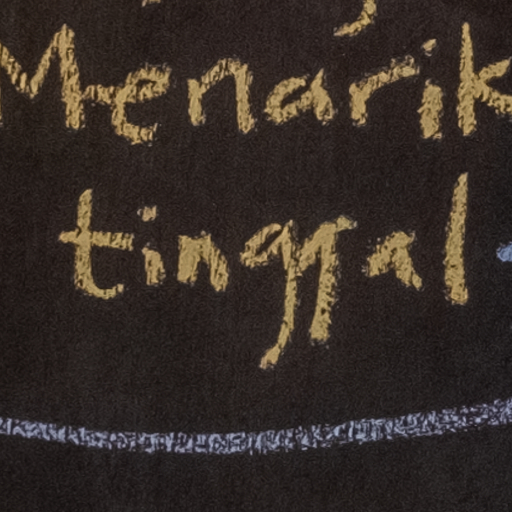 Menarik
tinggal